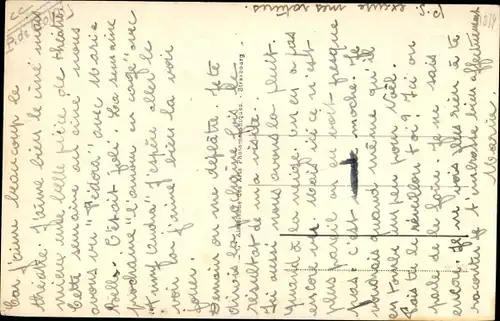 Car j'aime beaucoup le
théâtre. J'aime bien le ciné mais
mieux une belle pièce de théâtre
Cette semaine au ciné nous
avons vu "Fédora" avec Marie
Bell. C'était joli. La semaine
prochaine "L'amour en cage" avec
J'espère aller le
voir car j'aime bien la voir
jouer.
Demain on me déplâtre. Je te
dirais la prochaine fois le
résultat de ma visite.
Ici aussi nous avons la pluit.
Quand à la neige. on en a pas
encore vu. Mais ici ce n'est
plus pareil on en voit presque
pas : c'est moche. Je
voudrais quand même qu'il
en tombe un peu pour Noël.
Fais tu le réveillon toi ? Ici on
parle de le faire. Je ne sais
encore. Je ne vois plus rien à te
raconter et t'embrasse bien affectueusement
P.S. excuse mes ratures.
des Arts Photomécaniques - Strasbourg